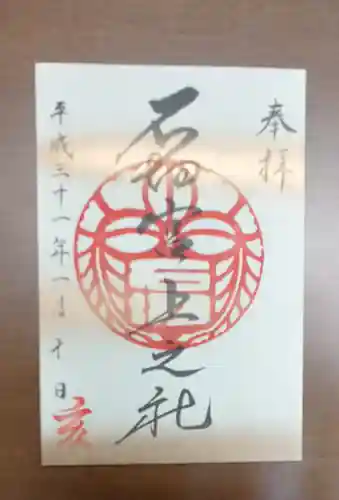 奉拝
石切宮上之社
平成三十一年一月十日
亥